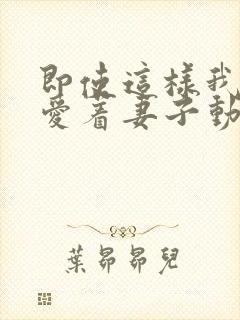 即使這樣我
愛着妻子動
葉昴昴兒